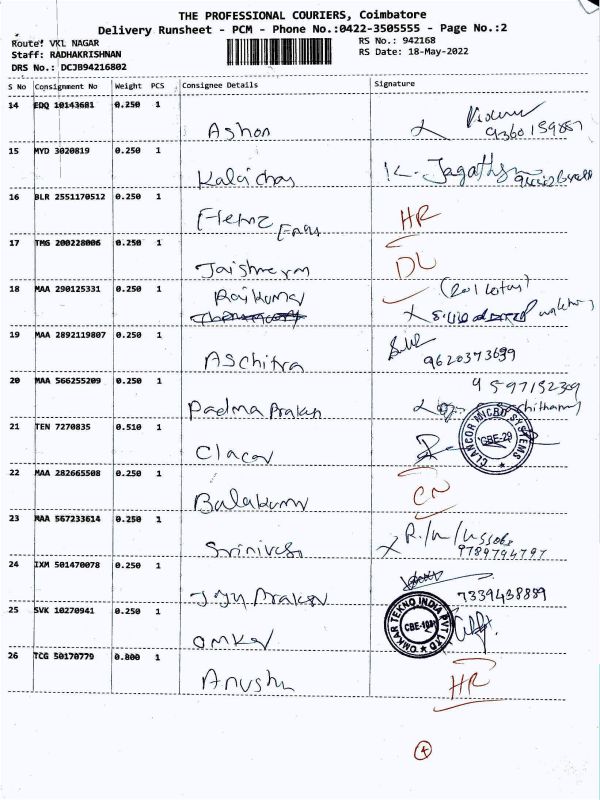 THE PROFESSIONAL COURIERS, Coimbatore
Delivery Runsheet - PCM - Phone No.:0422-3505555 - Page No.:2
Route: VKL NAGAR RS No.: 942168
Staff: RADHAKRISHNAN RS Date: 18-May-2022
DRS No.: DCJB94216802
S No Consignment No Weight PCS Consignee Details Signature
14 EDQ 10143681 0.250 1
Ashon 9360159887
15 MYD 3020819 0.250 1
K. Jagath
16 BLR 2551170512 0.250 1
HR
17 TMG 200228006 0.250 1
DL
18 MAA 290125331 0.250 1
Rajkumar
19 MAA 2892119807 0.250 1
Aschitra 9620373699
20 MAA 566255209 0.250 1 9597152309
Padma Prakash
21 TEN 7270835 0.510 1 CLANCOR MICRO SYSTEMS CBE-29
Clacor
22 MAA 282665508 0.250 1
Balakumar CN
23 MAA 567233614 0.250 1
Srinivasa 9789794797
24 IXM 501470078 0.250 1
Prakash 7339438889
25 SVK 10270941 0.250 1 OMKAR TEKNO INDIA PVT LTD
Omkar
26 TCG 50170779 0.800 1
HR
4